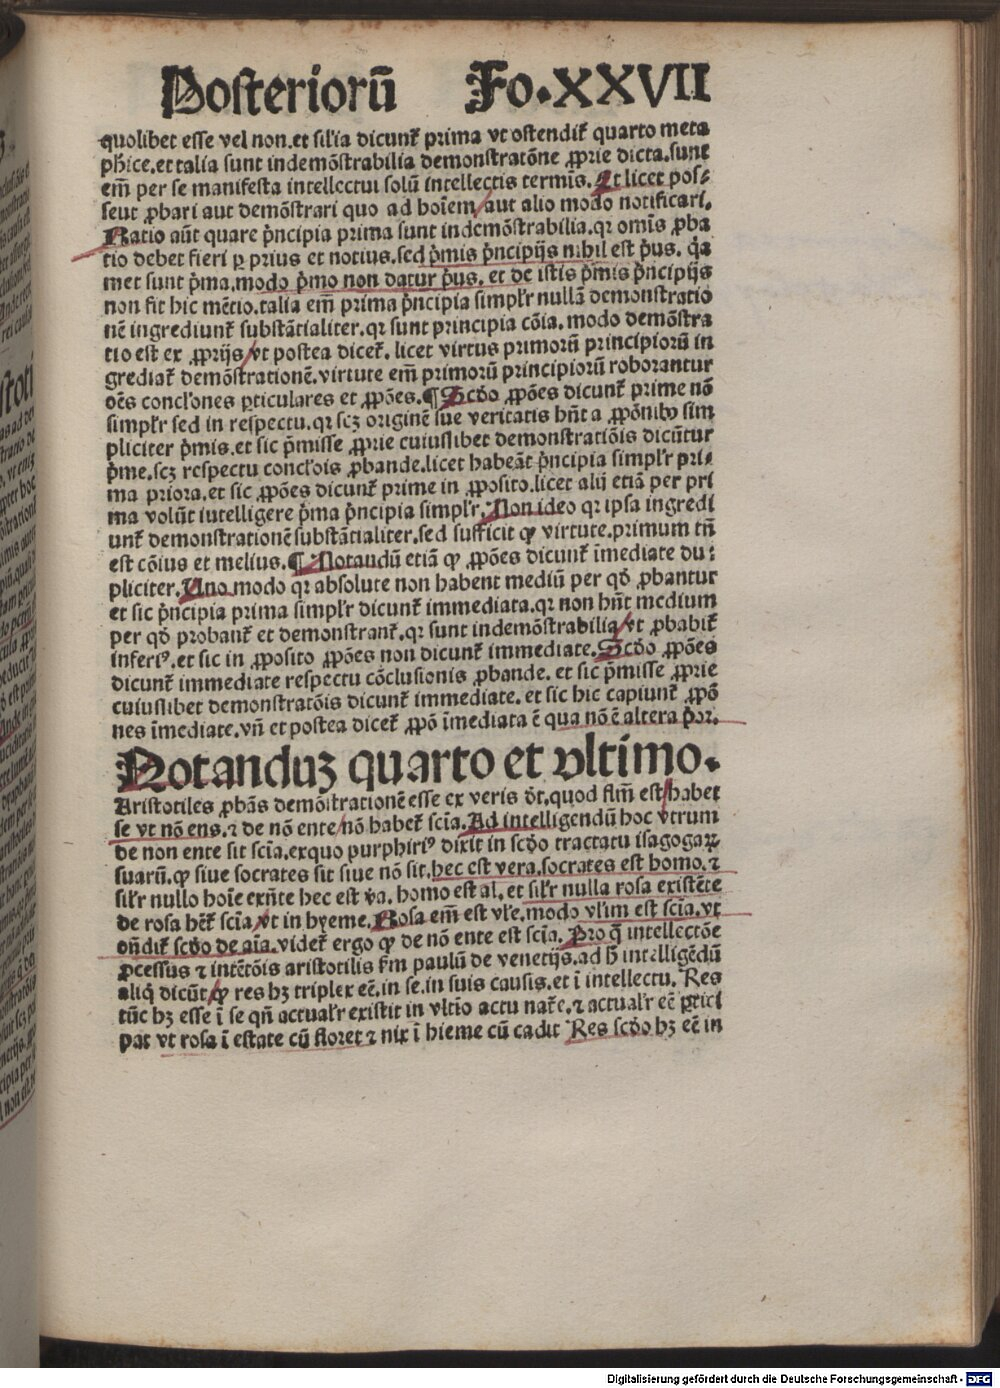 Posteriorū Fo.XXVII
quolibet esse vel non.et sil'ia dicunt᷑ prima vt ostendit᷑ quarto meta
phice.et talia sunt indemōstrabilia demonstratōne ꝓprie dicta.sunt
em̄ per se manifesta intellectui solū intellectis termīs.Et licet pos⸗
seut ꝓbari aut demōstrari quo ad hoīem/aut alio modo notificari.
Ratio aūt quare p̄ncipia prima sunt indemōstrabilia.qr omīs ꝓba
tio debet fieri ꝑ prius et notius.sed p̄mis p̄ncipijs nihil est p̄us. q̄a
met sunt p̄ma.modo p̄mo non datur p̄us. et de istis p̄mis p̄ncipijs
non fit hic mētio.talia em̄ prima p̄ncipia simpl'r nullā demonstratio
nē ingrediunt᷑ substātialiter.qr sunt principia cōia. modo demōstra
tio est ex ꝓprijs/vt postea dicet᷑. licet virtus primorū principiorū in
grediat᷑ demōstrationē.virtute em̄ primorū principiorū roborantur
oēs concl'ones ꝑticulares et ꝓpōes.¶ Scd̄o ꝓpōes dicunt᷑ prime nō
simpl'r sed in respectu.qr scꝫ originē sue veritatis hn̄t a ꝓpōnibꝰ sim
pliciter p̄mis.et sic p̄misse ꝓprie cuiuslibet demonstratiōis dicūtur
p̄me.scꝫ respectu concl'ois ꝓbande.licet habeāt p̄ncipia simpl'r pri⸗
ma priora.et sic ꝓpōes dicunt᷑ prime in ꝓposito.licet alij etiā per pri
ma volūt iutelligere p̄ma p̄ncipia simpl'r.Non ideo qr ipsa ingredi
unt᷑ demonstrationē substātialiter.sed sufficit ꝙ virtute.primum tn̄
est cōius et melius.¶ Notandū etiā ꝙ ꝓpōes dicunt᷑ īmediate du⸗
pliciter.Uno modo qr absolute non habent mediū per qd̄ ꝓbantur
et sic p̄ncipia prima simpl'r dicunt᷑ immediata.qr non hn̄t medium
per qd̄ probant᷑ et demonstrant᷑.qr sunt indemōstrabilia/vt ꝓbabit᷑
inferiꝰ.et sic in ꝓposito ꝓpōes non dicunt᷑ immediate.Scd̄o ꝓpōes
dicunt᷑ immediate respectu cōclusionis ꝓbande. et sic p̄misse ꝓprie
cuiuslibet demonstratōis dicunt᷑ immediate. et sic hic capiunt᷑ ꝓpō
nes īmediate.vn̄ et postea dicet᷑ ꝓpō īmediata ē qua nō ē altera p̄or.
Notanduꝫ quarto et vltimo.
Aristotiles ꝓbās demōstrationē esse ex veris d̄t.quod fl'm est/habet
se vt nō ens.⁊ de nō ente/nō habet᷑ scīa.Ad intelligendū hoc vtrum
de non ente sit scīa.exquo purphiriꝰ dixit in scd̄o tractatu isagogaꝝ
suarū.ꝙ siue socrates sit siue nō sit.hec est vera.socrates est homo.⁊
sil'r nullo hoīe exn̄te hec est v̄a. homo est al.et sil'r nulla rosa existēte
de rosa hēt᷑ scīa/vt in hyeme.Rosa em̄ est vl'e.modo vl'im est scīa.vt
on̄dit᷑ scd̄o de aīa.videt᷑ ergo ꝙ de nō ente est scīa. Pro q̄ intellectōe
ꝓcessus ⁊ intētōis aristotilis ẜm paulū de venetijs.ad h̄ intelligēdū
aliq̄ dicūt/ꝙ res hꝫ triplex eē.in se.in suis causis.et ī intellectu. Res
tūc hꝫ esse ī se qn̄ actual'r existit in vltīo actu nat᷑e.⁊ actual'r eē ꝑtici
pat vt rosa ī estate cū floret ⁊ nix ī hieme cū cadit Res scd̄o hꝫ eē in
Digitalisierung gefördert durch die Deutsche Forschungsgemeinschaft - DFG